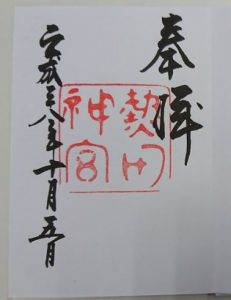 奉拝
熱田
神宮
平成二八年十月五日